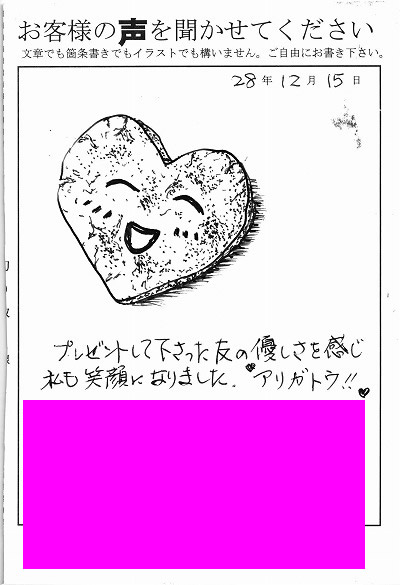 お客様の声を聞かせてください
文章でも箇条書きでもイラストでも構いません。ご自由にお書き下さい。
28年12月15日
プレゼントして下さった友の優しさを感じ
私も笑顔になりました. アリガトウ!!